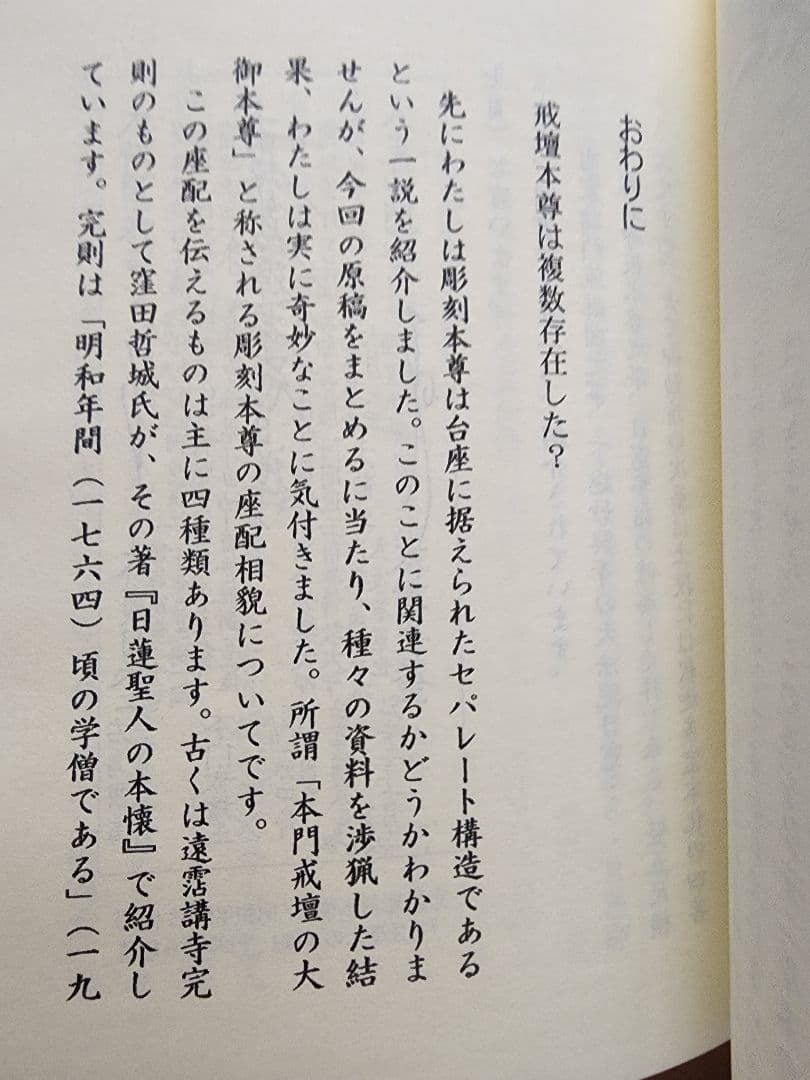 おわりに
戒壇本尊は複数存在した？
先にわたしは彫刻本尊は台座に据えられたセパレート構造である
という一説を紹介しました。このことに関連するかどうかわかりま
せんが、今回の原稿をまとめるに当たり、種々の資料を渉猟した結
果、わたしは実に奇妙なことに気付きました。所謂「本門戒壇の大
御本尊」と称される彫刻本尊の座配相貌についてです。
この座配を伝えるものは主に四種類あります。古くは遠霑講寺完
則のものとして窪田哲城氏が、その著『日蓮聖人の本懐』で紹介し
ています。完則は「明和年間（一七六四）頃の学僧である」（一九